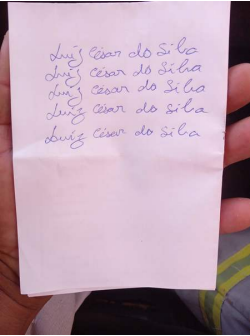 Luiz César do Silva
Luiz César do Silva
Luiz César do Silva
Luiz César do Silva
Luiz César do Silva